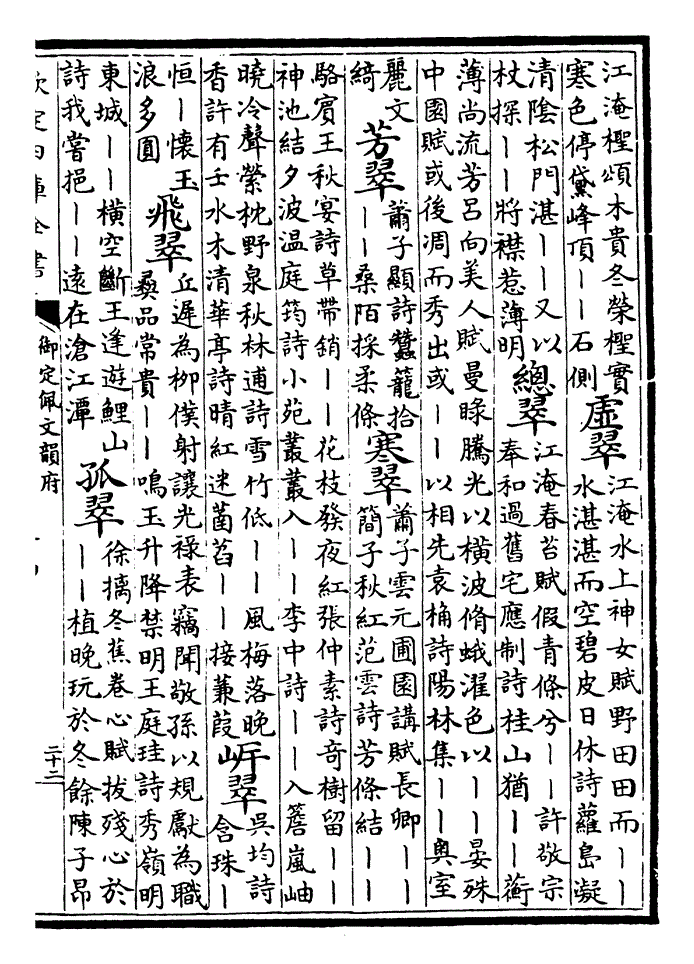 江淹檉頌木貴冬榮檉實
寒色停黛峰頂丨丨石側
虛翠
江淹水上神女賦野田田而丨丨
水湛湛而空碧皮日休詩蘿島凝
清陰松門湛丨丨又以
杖探丨丨將襟惹薄明
總翠
江淹春苔賦假青條兮丨丨許敬宗
奉和過舊宅應制詩桂山猶丨丨蘅
薄尚流芳呂向美人賦曼睩騰光以橫波脩蛾濯色以丨丨晏殊
中園賦或後凋而秀出或丨丨以相先袁桷詩陽林集丨丨奧室
麗文
綺
芳翠
蕭子顯詩蠶籠拾
丨丨桑陌採柔條
寒翠
蕭子雲元圃園講賦長卿丨丨
簡子秋紅范雲詩芳條結丨丨
駱賓王秋宴詩草帶銷丨丨花枝發夜紅張仲素詩奇樹留丨丨
神池結夕波温庭筠詩小苑叢叢入丨丨李中詩丨丨入簷嵐岫
曉冷聲縈枕野泉秋林逋詩雪竹低丨丨風梅落晚
香許有壬水木清華亭詩晴紅迷菡萏丨丨接蒹葭
岍翠
吳均詩
含珠丨
恒丨懷玉
浪多圓
飛翠
丘遲為栁僕射讓光祿表竊聞敬孫以規獻為職
彜品常貴丨丨鳴玉升降禁明王庭珪詩秀嶺明
東城丨丨橫空斷王逢遊鯉山
詩我嘗挹丨丨遠在滄江潭
孤翠
徐摛冬蕉卷心賦拔殘心於
丨丨植晚玩於冬餘陳子昂
欽定四庫全書
御定佩文韻府
二十二